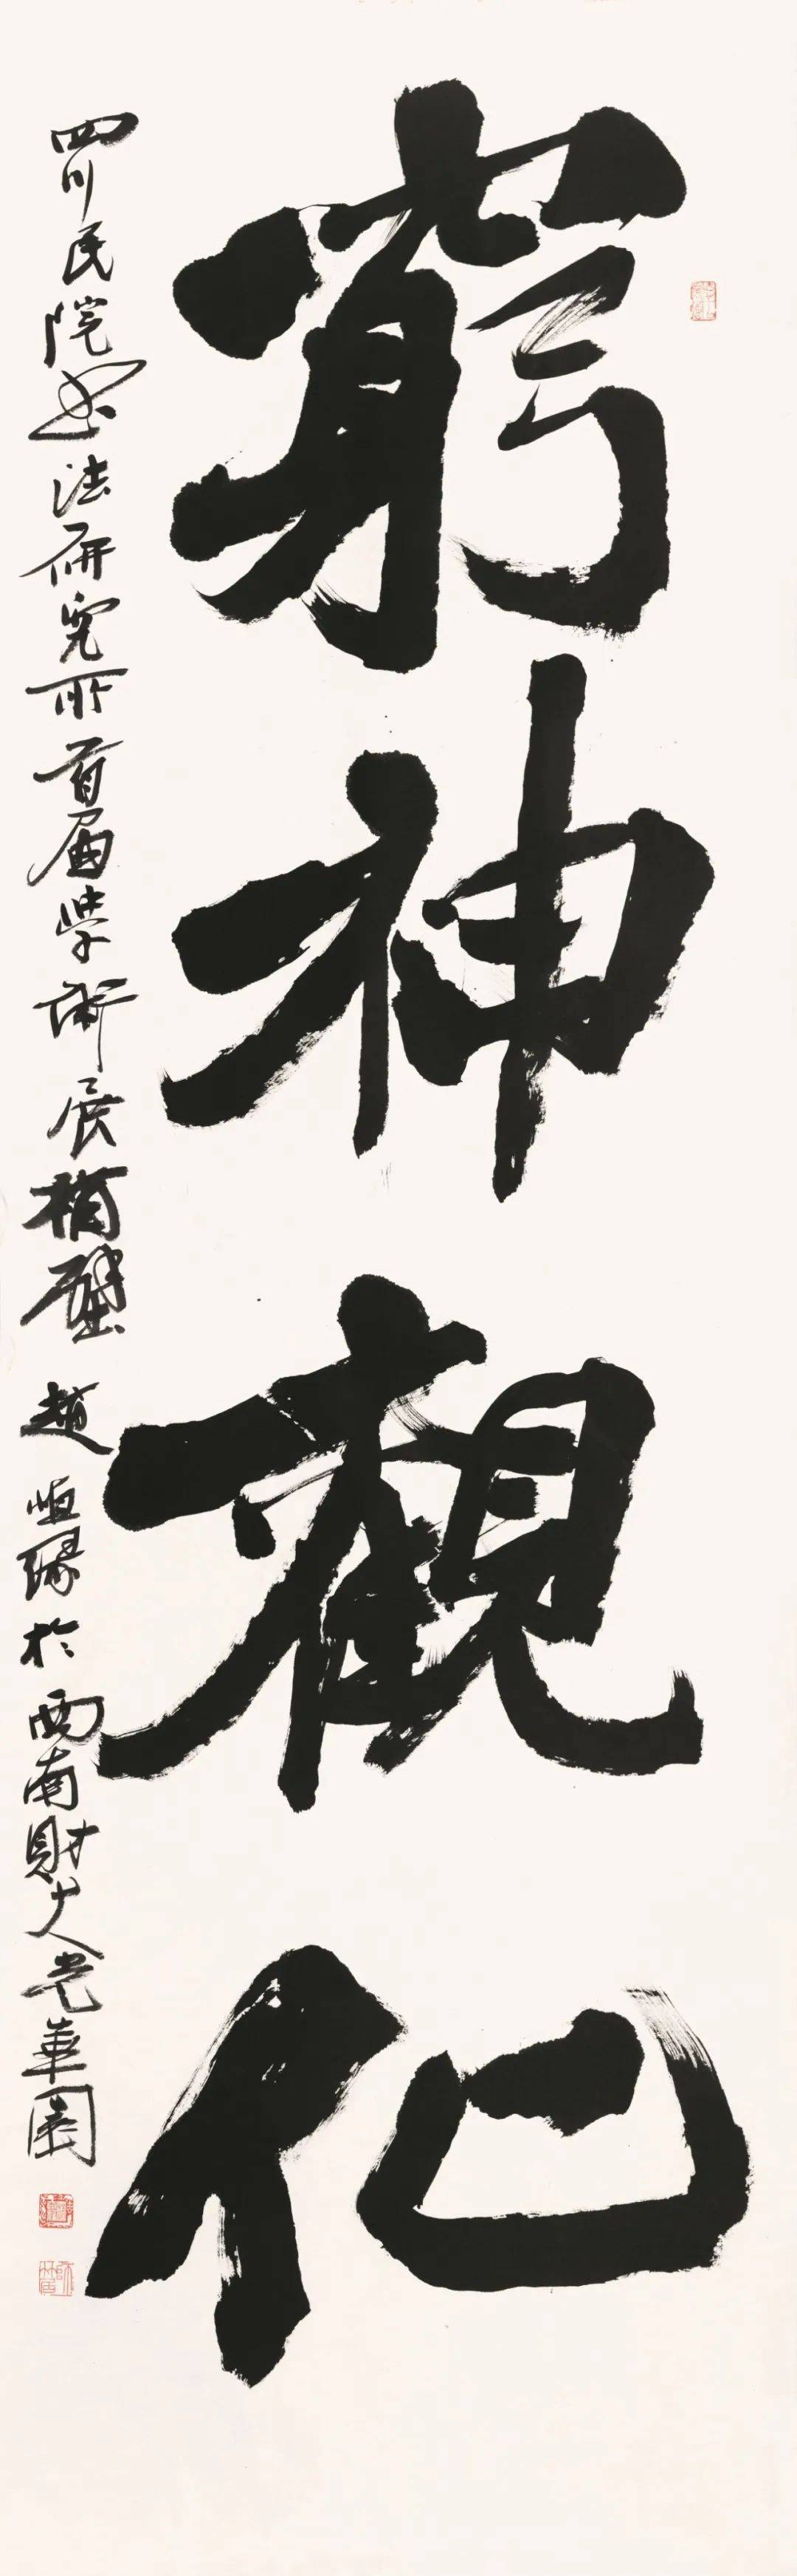 窮神觀化
四川民院書法研究所首届學術展補壁 趙恒緣於西南財大光華園